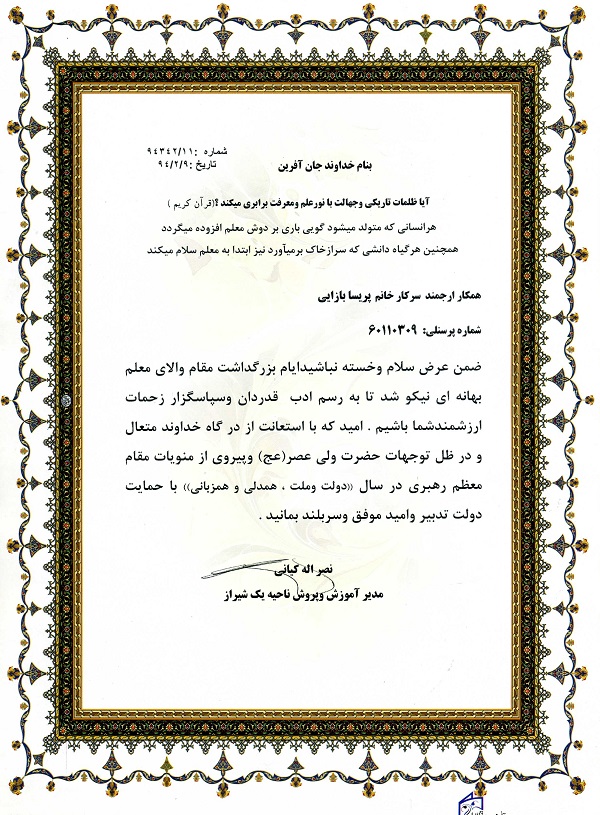 شماره :۹٤۳٤۲/۱۱
تاریخ :۹٤/۲/۹
بنام خداوند جان آفرین
آیا ظلمات تاریکی وجهالت با نورعلم ومعرفت برابری میکند ؟(قرآن کریم )
هرانسانی که متولد میشود گویی باری بر دوش معلم افزوده میگردد
همچنین هرگیاه دانشی که سرازخاک برمیآورد نیز ابتدا به معلم سلام میکند
همکار ارجمند سرکار خانم پریسا بازایی
شماره پرسنلی: ۶۰۱۱۰۳۰۹
ضمن عرض سلام وخسته نباشیدایام بزرگداشت مقام والای معلم
بهانه ای نیکو شد تا به رسم ادب قدردان وسپاسگزار زحمات
ارزشمندشما باشیم . امید که با استعانت از در گاه خداوند متعال
و در ظل توجهات حضرت ولی عصر(عج) وپیروی از منویات مقام
معظم رهبری در سال ((دولت وملت ، همدلی و همزبانی)) با حمایت
دولت تدبیر وامید موفق وسربلند بمانید .
نصر اله کیانی
مدیر آموزش وپروش ناحیه یک شیراز